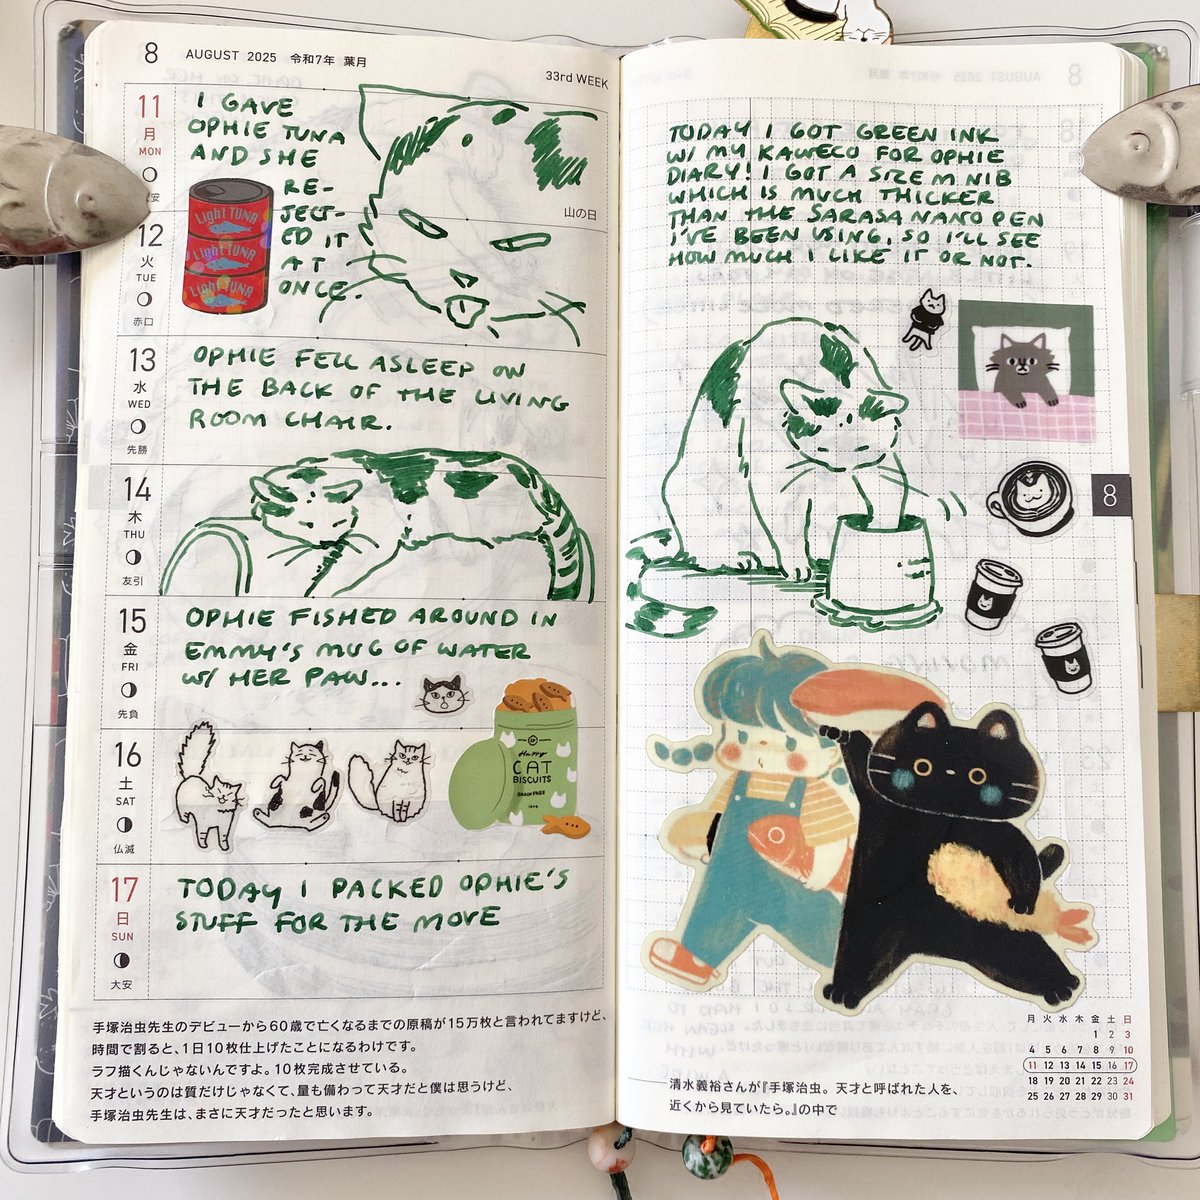 8 AUGUST 2025 令和7年 葉月
33rd WEEK
11
月
MON
I GAVE
OPHIE TUNA
AND SHE
RE-
JECT-
ED IT
AT
ONCE.
Light TUNA
Light TUNA
Light TUNA
山の日
12
火
TUE
赤口
13
水
WED
先勝
OPHIE FELL ASLEEP ON
THE BACK OF THE LIVING
ROOM CHAIR.
14
木
THU
友引
15
金
FRI
先負
OPHIE FISHED AROUND IN
EMMY'S MUG OF WATER
W/ HER PAW...
16
土
SAT
仏滅
Happy
CAT
BISCUITS
GRAIN FREE
17
日
SUN
大安
TODAY I PACKED OPHIE'S
STUFF FOR THE MOVE
手塚治虫先生のデビューから60歳で亡くなるまでの原稿が15万枚と言われてますけど、
時間で割ると、1日10枚仕上げたことになるわけです。
ラフ描くんじゃないんですよ。10枚完成させている。
天才というのは質だけじゃなくて、量も備わって天才だと僕は思うけど、
手塚治虫先生は、まさに天才だったと思います。
TODAY I GOT GREEN INK
W/ MY KAWECO FOR OPHIE
DIARY! I GOT A SIZE M NIB
WHICH IS MUCH THICKER
THAN THE SARASA NANO PEN
I'VE BEEN USING, SO I'LL SEE
HOW MUCH I LIKE IT OR NOT.
8
清水義裕さんが『手塚治虫。天才と呼ばれた人を、
近くから見ていたら。』の中で
月 火 水 木 金 土 日
1 2 3
4 5 6 7 8 9 10
11 12 13 14 15 16 17
18 19 20 21 22 23 24
25 26 27 28 29 30 31